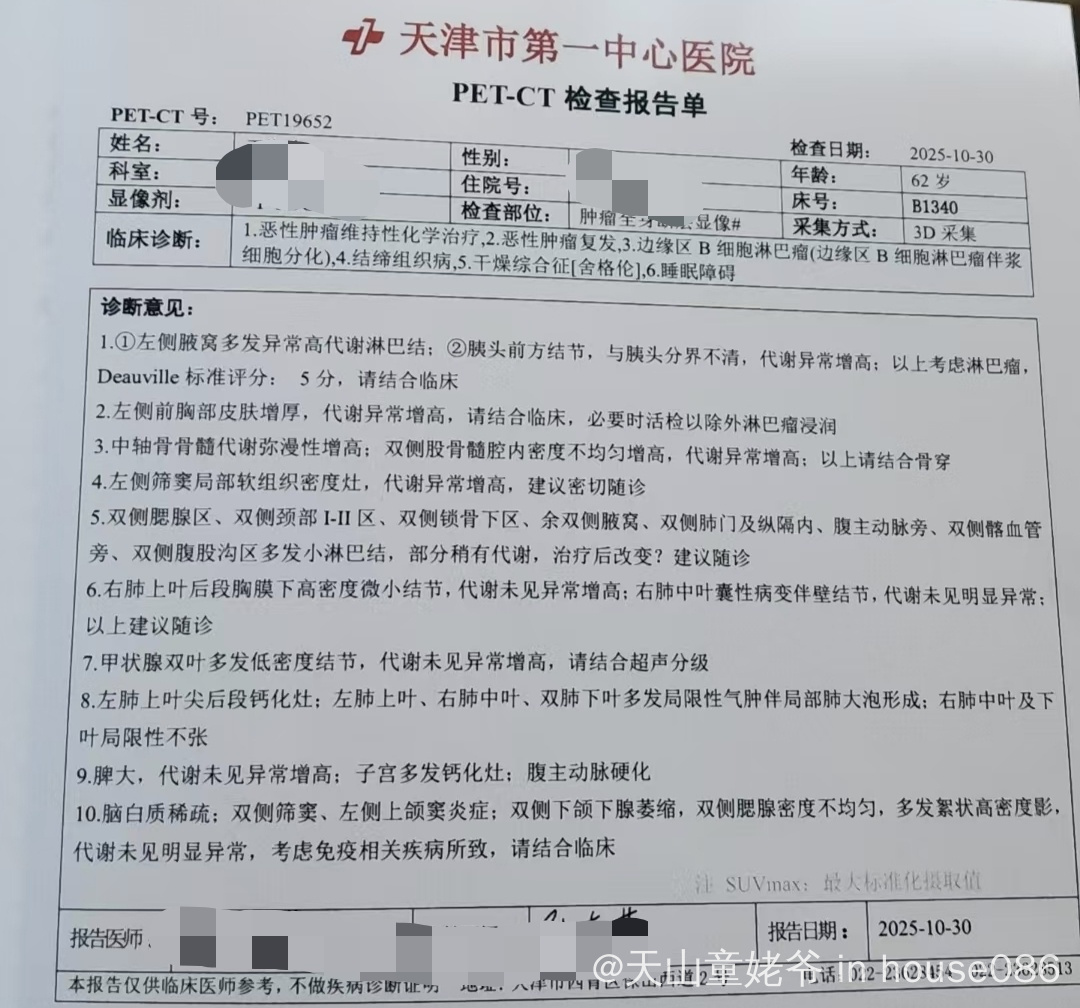 天津市第一中心医院
PET-CT 检查报告单
PET-CT 号： PET19652
检查日期： 2025-10-30
姓名： 性别： 年龄： 62 岁
科室： 住院号： 床号： B1340
显像剂： 检查部位： 肿瘤全身 显像# 采集方式： 3D 采集
临床诊断： 1.恶性肿瘤维持性化学治疗,2.恶性肿瘤复发,3.边缘区 B 细胞淋巴瘤(边缘区 B 细胞淋巴瘤伴浆
细胞分化),4.结缔组织病,5.干燥综合征[舍格伦],6.睡眠障碍
诊断意见：
1.①左侧腋窝多发异常高代谢淋巴结；②胰头前方结节，与胰头分界不清，代谢异常增高；以上考虑淋巴瘤，
Deauville 标准评分： 5 分，请结合临床
2.左侧前胸部皮肤增厚，代谢异常增高，请结合临床，必要时活检以除外淋巴瘤浸润
3.中轴骨骨髓代谢弥漫性增高；双侧股骨髓腔内密度不均匀增高，代谢异常增高；以上请结合骨穿
4.左侧筛窦局部软组织密度灶，代谢异常增高，建议密切随诊
5.双侧腮腺区、双侧颈部 I-II 区、双侧锁骨下区、余双侧腋窝、双侧肺门及纵隔内、腹主动脉旁、双侧髂血管
旁、双侧腹股沟区多发小淋巴结，部分稍有代谢，治疗后改变？建议随诊
6.右肺上叶后段胸膜下高密度微小结节，代谢未见异常增高；右肺中叶囊性病变伴壁结节，代谢未见明显异常；
以上建议随诊
7.甲状腺双叶多发低密度结节，代谢未见异常增高，请结合超声分级
8.左肺上叶尖后段钙化灶；左肺上叶、右肺中叶、双肺下叶多发局限性气肿伴局部肺大泡形成；右肺中叶及下
叶局限性不张
9.脾大，代谢未见异常增高；子宫多发钙化灶；腹主动脉硬化
10.脑白质稀疏；双侧筛窦、左侧上颌窦炎症；双侧下颌下腺萎缩，双侧腮腺密度不均匀，多发絮状高密度影，
代谢未见明显异常，考虑免疫相关疾病所致，请结合临床
注 SUVmax：最大标准化摄取值
报告医师 报告日期： 2025-10-30
本报告仅供临床医师参考，不做疾病诊断证明 地址：天津市西青区保山西道2号 电话：022-
@天山童姥爷 in_house086